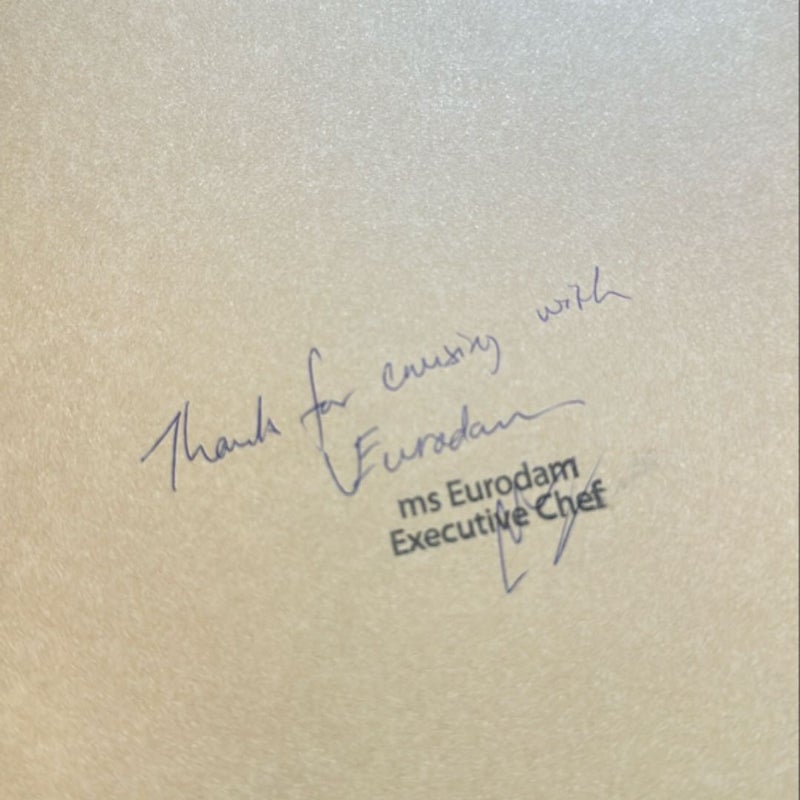 Thank for cruising with
Eurodam
ms Eurodam
Executive Chef